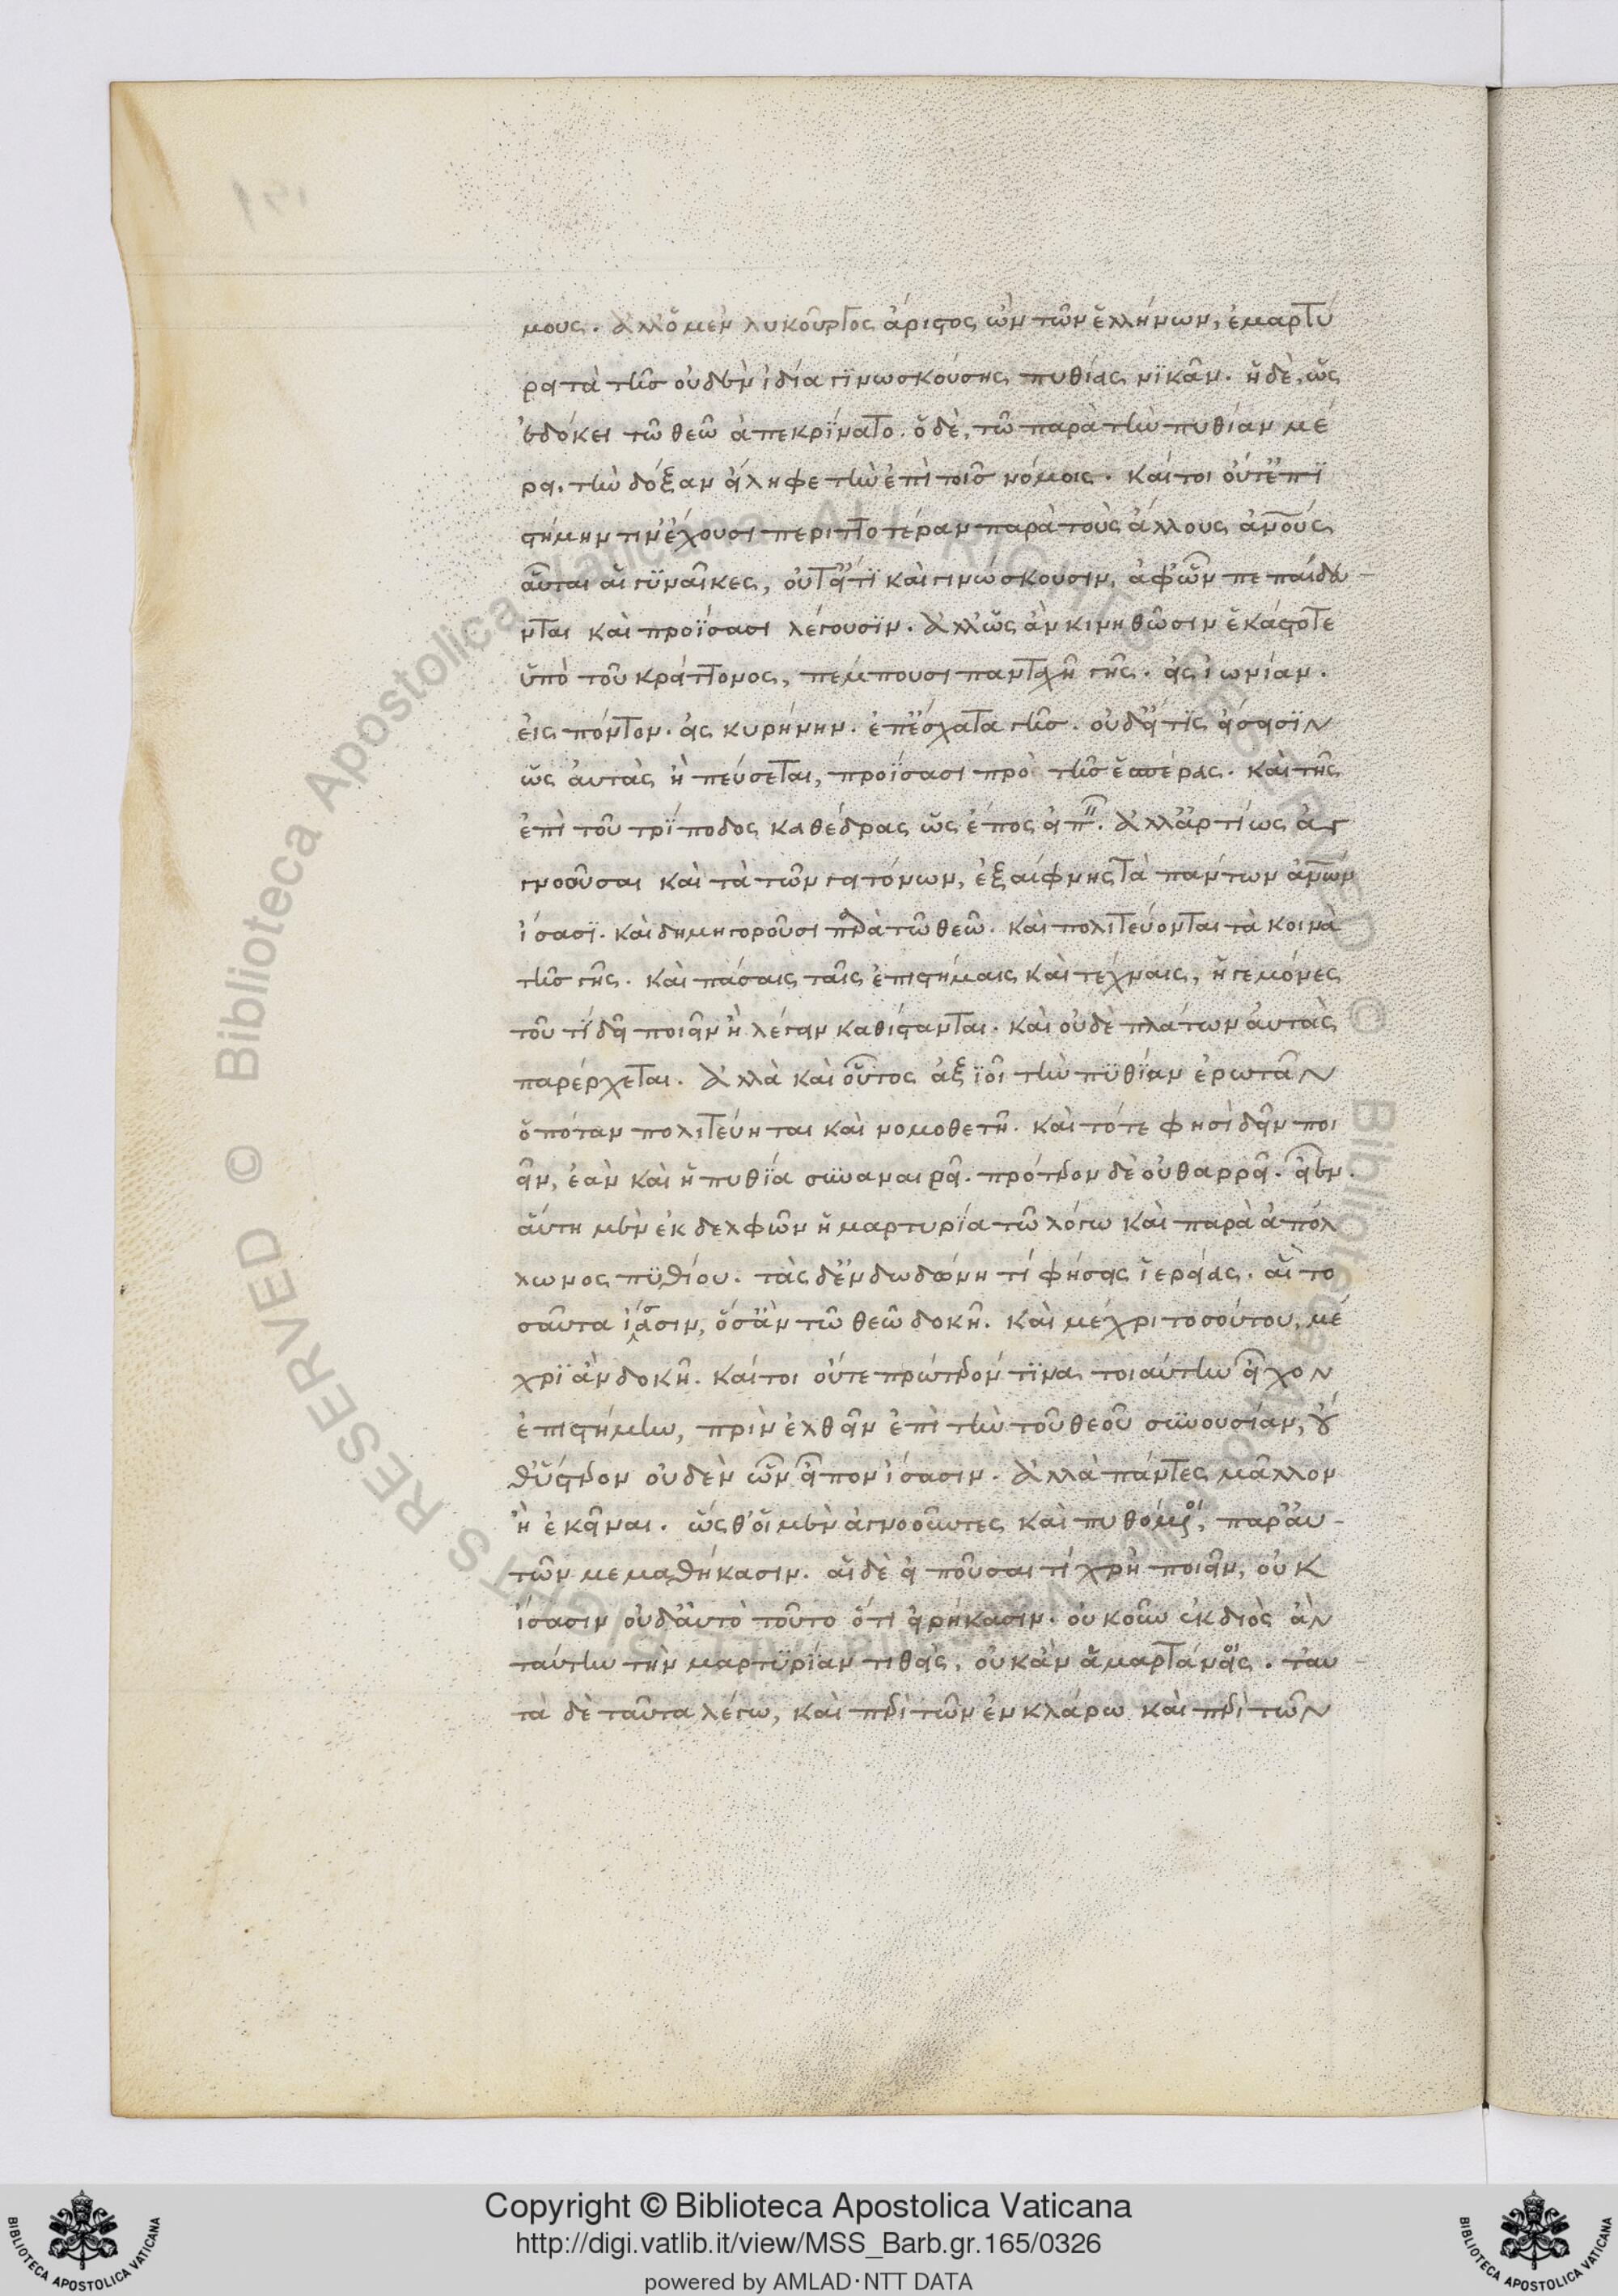 μους. ἀλλ' ὁ μὲν λυκοῦργος ἄριστος ὢν τῶν ἑλλήνων, ἐμαρτύ
ρατο τῆς οὐδὲν ἰδία γινωσκούσης πυθίας νικᾶν. ἡ δὲ, ὡς
ἐδόκει τῶ θεῶ ἀπεκρίνατο. ὁ δὲ, τῶ παρὰ τὴν πυθίαν μέ
ρει τὴν δόξαν εἴληφε τὴν ἐπὶ τοῖς νόμοις. καίτοι οὔτ' ἐπι
στήμην τιν' ἔχουσι περιττοτέραν παρὰ τοὺς ἄλλους ἀνους
αὗται αἱ γυναῖκες, οὔτ' εἴ τι καὶ γινώσκουσιν, ἀφ' ὧν πεπαίδευ-
νται καὶ προΐσασι λέγουσιν. ἀλλ' ὡς ἂν κινηθῶσιν ἑκάστοτε
ὑπὸ τοῦ κρείττονος, πέμπουσι πανταχῆ γῆς. εἰς ἰωνίαν.
εἰς πόντον. εἰς κυρήνην. ἐπ' ἔσχατα γῆς. οὐδ' εἴ τις εἴσεισιν
ὡς αὐτὰς ἢ πεύσεται, προΐσασι πρὸ τῆς ἑσπέρας. καὶ τῆς
ἐπὶ τοῦ τρίποδος καθέδρας ὡς ἔπος εἰπ. ἀλλ' ἀρτίως ἀγ
γνοοῦσαι καὶ τὰ τῶν γειτόνων, ἐξαίφνης τὰ πάντων ἀνων
ἴσασι. καὶ δημηγοροῦσι παρὰ τῶ θεῶ. καὶ πολιτεύονται τὰ κοινὰ
τῆς γῆς. καὶ πάσαις ταῖς ἐπιστήμαις καὶ τέχναις, ἡγεμόνες
τοῦ τί δεῖ ποιεῖν ἢ λέγειν καθίστανται. καὶ οὐδὲ πλάτων αὐτὰς
παρέρχεται. ἀλλὰ καὶ οὗτος ἀξιοῖ τὴν πυθίαν ἐρωτᾶν
ὁπόταν πολιτεύηται καὶ νομοθετῆ. καὶ τότε φησὶ δεῖν ποι
εῖν, ἐὰν καὶ ἡ πυθία συναναιρεῖ. πρότερον δὲ οὐ θαρρεῖ. εἶεν.
αὕτη μὲν ἐκ δελφῶν ἡ μαρτυρία τῶ λόγω καὶ παρὰ ἀπόλ
λωνος πυθίου. τὰς δ' ἐν δωδώνη τί φήσεις ἱερείας. αἳ το
σαῦτα ἴσασιν, ὅσ' ἂν τῶ θεῶ δοκῆ. καὶ μέχρι τοσούτου, μέ
χρι ἂν δοκῆ. καίτοι οὔτε πρότερόν τινα τοιαύτην εἶχον
ἐπιστήμην, πρὶν ἐλθεῖν ἐπὶ τὴν τοῦ θεοῦ συνουσίαν, οὔ
θ' ὕστερον οὐδὲν ὧν εἶπον ἴσασιν. ἀλλὰ πάντες μᾶλλον
ἢ ἐκεῖναι. ὥσθ' οἱ μὲν ἀγνοοῦντες καὶ πυθόμενοι, παρ' αυ-
τῶν μεμαθήκασιν. αἱ δὲ εἰποῦσαι τί χρὴ ποιεῖν, οὐκ
ἴσασιν οὐδ' αὐτὸ τοῦτο ὅτι εἰρήκασιν. οὐκοῦν ἐκ διὸς ἂν
ταύτην τὴν μαρτυρίαν τιθεὶς, οὐκ ἂν ἁμαρτάνοις. ταυ-
τὰ δὲ ταῦτα λέγω, καὶ περὶ τῶν ἐν κλάρω καὶ περὶ τῶν
Copyright © Biblioteca Apostolica Vaticana
http://digi.vatlib.it/view/MSS_Barb.gr.165/0326
powered by AMLAD·NTT DATA